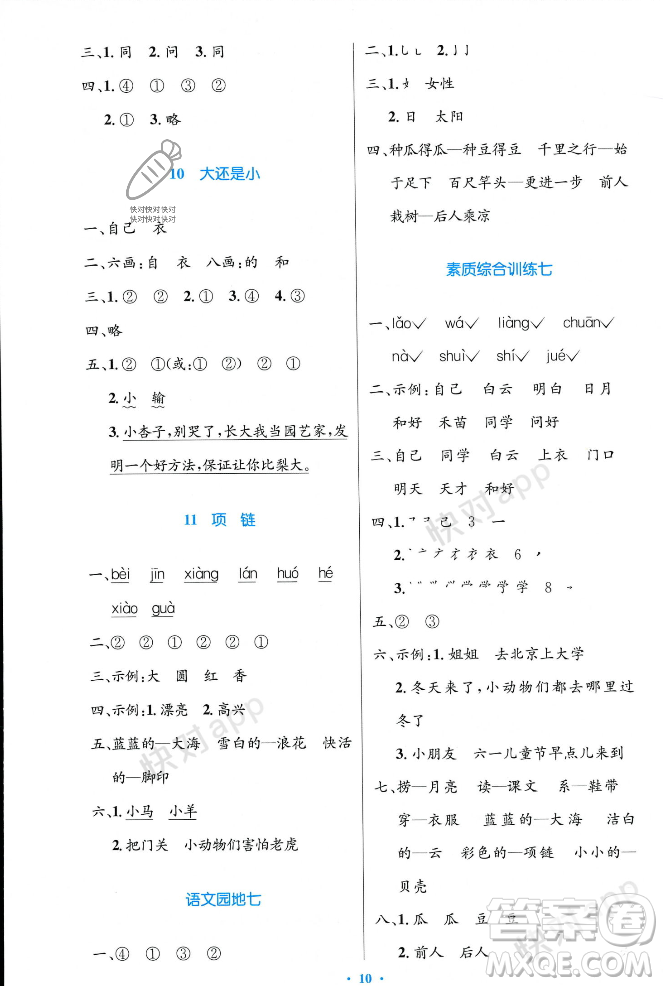 三、1. 同　2. 问　3. 同
四、1. ④　①　③　②
2. ①　3. 略
10　大还是小
快对快对快对
快对快对快对
一、自己　衣
二、六画：自　衣　八画：的　和
三、1. ①　②　2. ②　①　3. ②　①
四、略
五、1. ②　①(或：①　②)　②　①
2. 小　输
3. 小杏子，别哭了，长大我当园艺家，发
明一个好方法，保证让你比梨大。
11　项　链
一、bèi　jīn　xiàng　lán　huó　hé
xiào　guà
二、②　②　①　②　①　②
三、示例：大　圆　红　香
四、示例：1. 漂亮　2. 高兴
五、蓝蓝的—大海　雪白的—浪花　快活
的—脚印
六、1. 小马　小羊
2. 把门关　小动物们害怕老虎
语文园地七
一、④　①　③　②
二、1. 乚　2. 亅
三、1. 女　女性
2. 日　太阳
四、种瓜得瓜—种豆得豆　千里之行—始
于足下　百尺竿头—更进一步　前人
栽树—后人乘凉
素质综合训练七
一、lǎo✓　wá✓　liàng✓　chuān✓
nà✓　shuì✓　shí✓　jué✓
二、示例：自己　白云　明白　日月
和好　禾苗　同学　问好
三、自己　同学　白云　上衣　门口
明天　天才　和好
四、1. 己　3　一
2. 衣　6
3. 学　8
五、②　③
六、示例：1. 姐姐　去北京上大学
2. 冬天来了，小动物们都想度过
冬了
3. 小朋友　六一儿童节早点儿来到
七、捞—月亮　读—课文　系—鞋带
穿—衣服　蓝蓝的—大海　洁白
的—云　彩色的—项链　小小的—
贝壳
八、1. 瓜　瓜　豆　豆
2. 前人　后人
快对app
快对app
快对app
快对app
答案圈
MXQE.COM
10